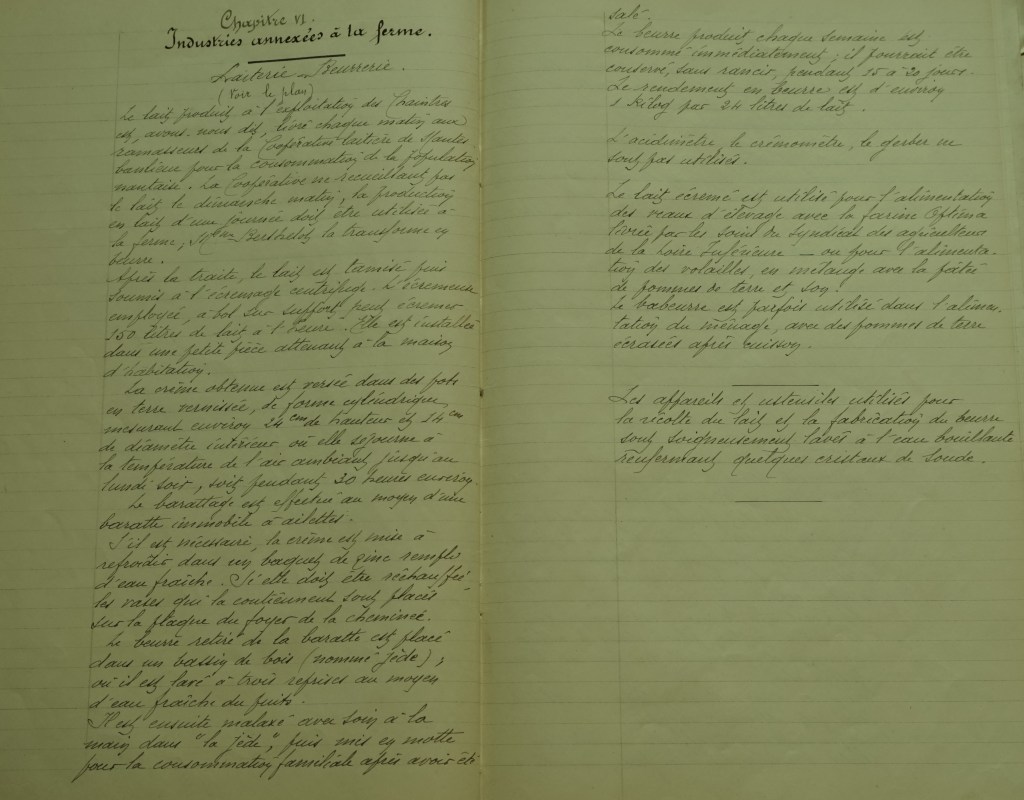 Chapitre VI.
Industries annexées à la ferme.
Laiterie - Beurrerie.
(Voir le plan)
Le lait produit à l'exploitation des Chaintres
est, avons-nous dit, livré chaque matin aux
ramasseurs de la Coopérative laitière de Nantes
banlieue pour la consommation de la population
nantaise. La Coopérative ne recueillant pas
le lait le dimanche matin, la production
en lait d'une journée doit être utilisée à
la ferme, Mme Berthelot la transforme en
beurre.
Après la traite, le lait est tamisé puis
soumis à l'écrémage centrifuge. L'écrémeuse
employée, à bol sur support, peut écrémer
150 litres de lait à l'heure. Elle est installée
dans une petite pièce attenant à la maison
d'habitation.
La crème obtenue est versée dans des pots
en terre vernissée, de forme cylindrique,
mesurant environ 24 cm de hauteur et 14 cm
de diamètre intérieur où elle séjourne à
la température de l'air ambiant jusqu'au
lundi soir, soit pendant 30 heures environ.
Le barattage est effectué au moyen d'une
baratte immobile à ailettes.
S'il est nécessaire, la crème est mise à
refroidir dans un baquet de zinc rempli
d'eau fraîche. Si elle doit être réchauffée
les vases qui la contiennent sont placés
sur la plaque du foyer de la cheminée.
Le beurre retiré de la baratte est placé
dans un bassin de bois (nommé jède),
où il est lavé à trois reprises au moyen
d'eau fraîche du puits.
Il est ensuite malaxé avec soin à la
main dans "la jède", puis mis en motte
pour la consommation familiale après avoir été
salé.
Le beurre produit chaque semaine est
consommé immédiatement ; il pourrait être
conservé, sans rancir, pendant 15 à 20 jours.
Le rendement en beurre est d'environ
1 Kilog par 24 litres de lait.
L'acidimètre, le crémomètre, le gerber ne
sont pas utilisés.
Le lait écrémé est utilisé pour l'alimentation
des veaux d'élevage avec la farine Optima
livrée par les soins du Syndicat des agriculteurs
de la Loire Inférieure — ou pour l'alimenta-
tion des volailles, en mélange avec la pâtée
de pommes de terre et son.
Le babeurre est parfois utilisé dans l'alimen-
tation du ménage, avec des pommes de terre
écrasées après cuisson.
Les appareils et ustensiles utilisés pour
la récolte du lait et la fabrication du beurre
sont soigneusement lavés à l'eau bouillante
renfermant quelques cristaux de soude.